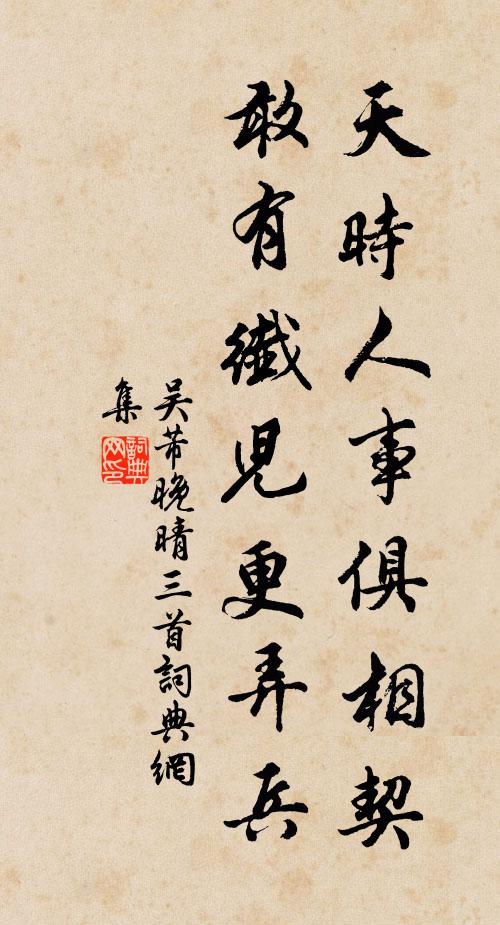 天時人事俱相契
敢有纖児更弄兵
吴芾晚晴三首詞典網
集
詞典網印